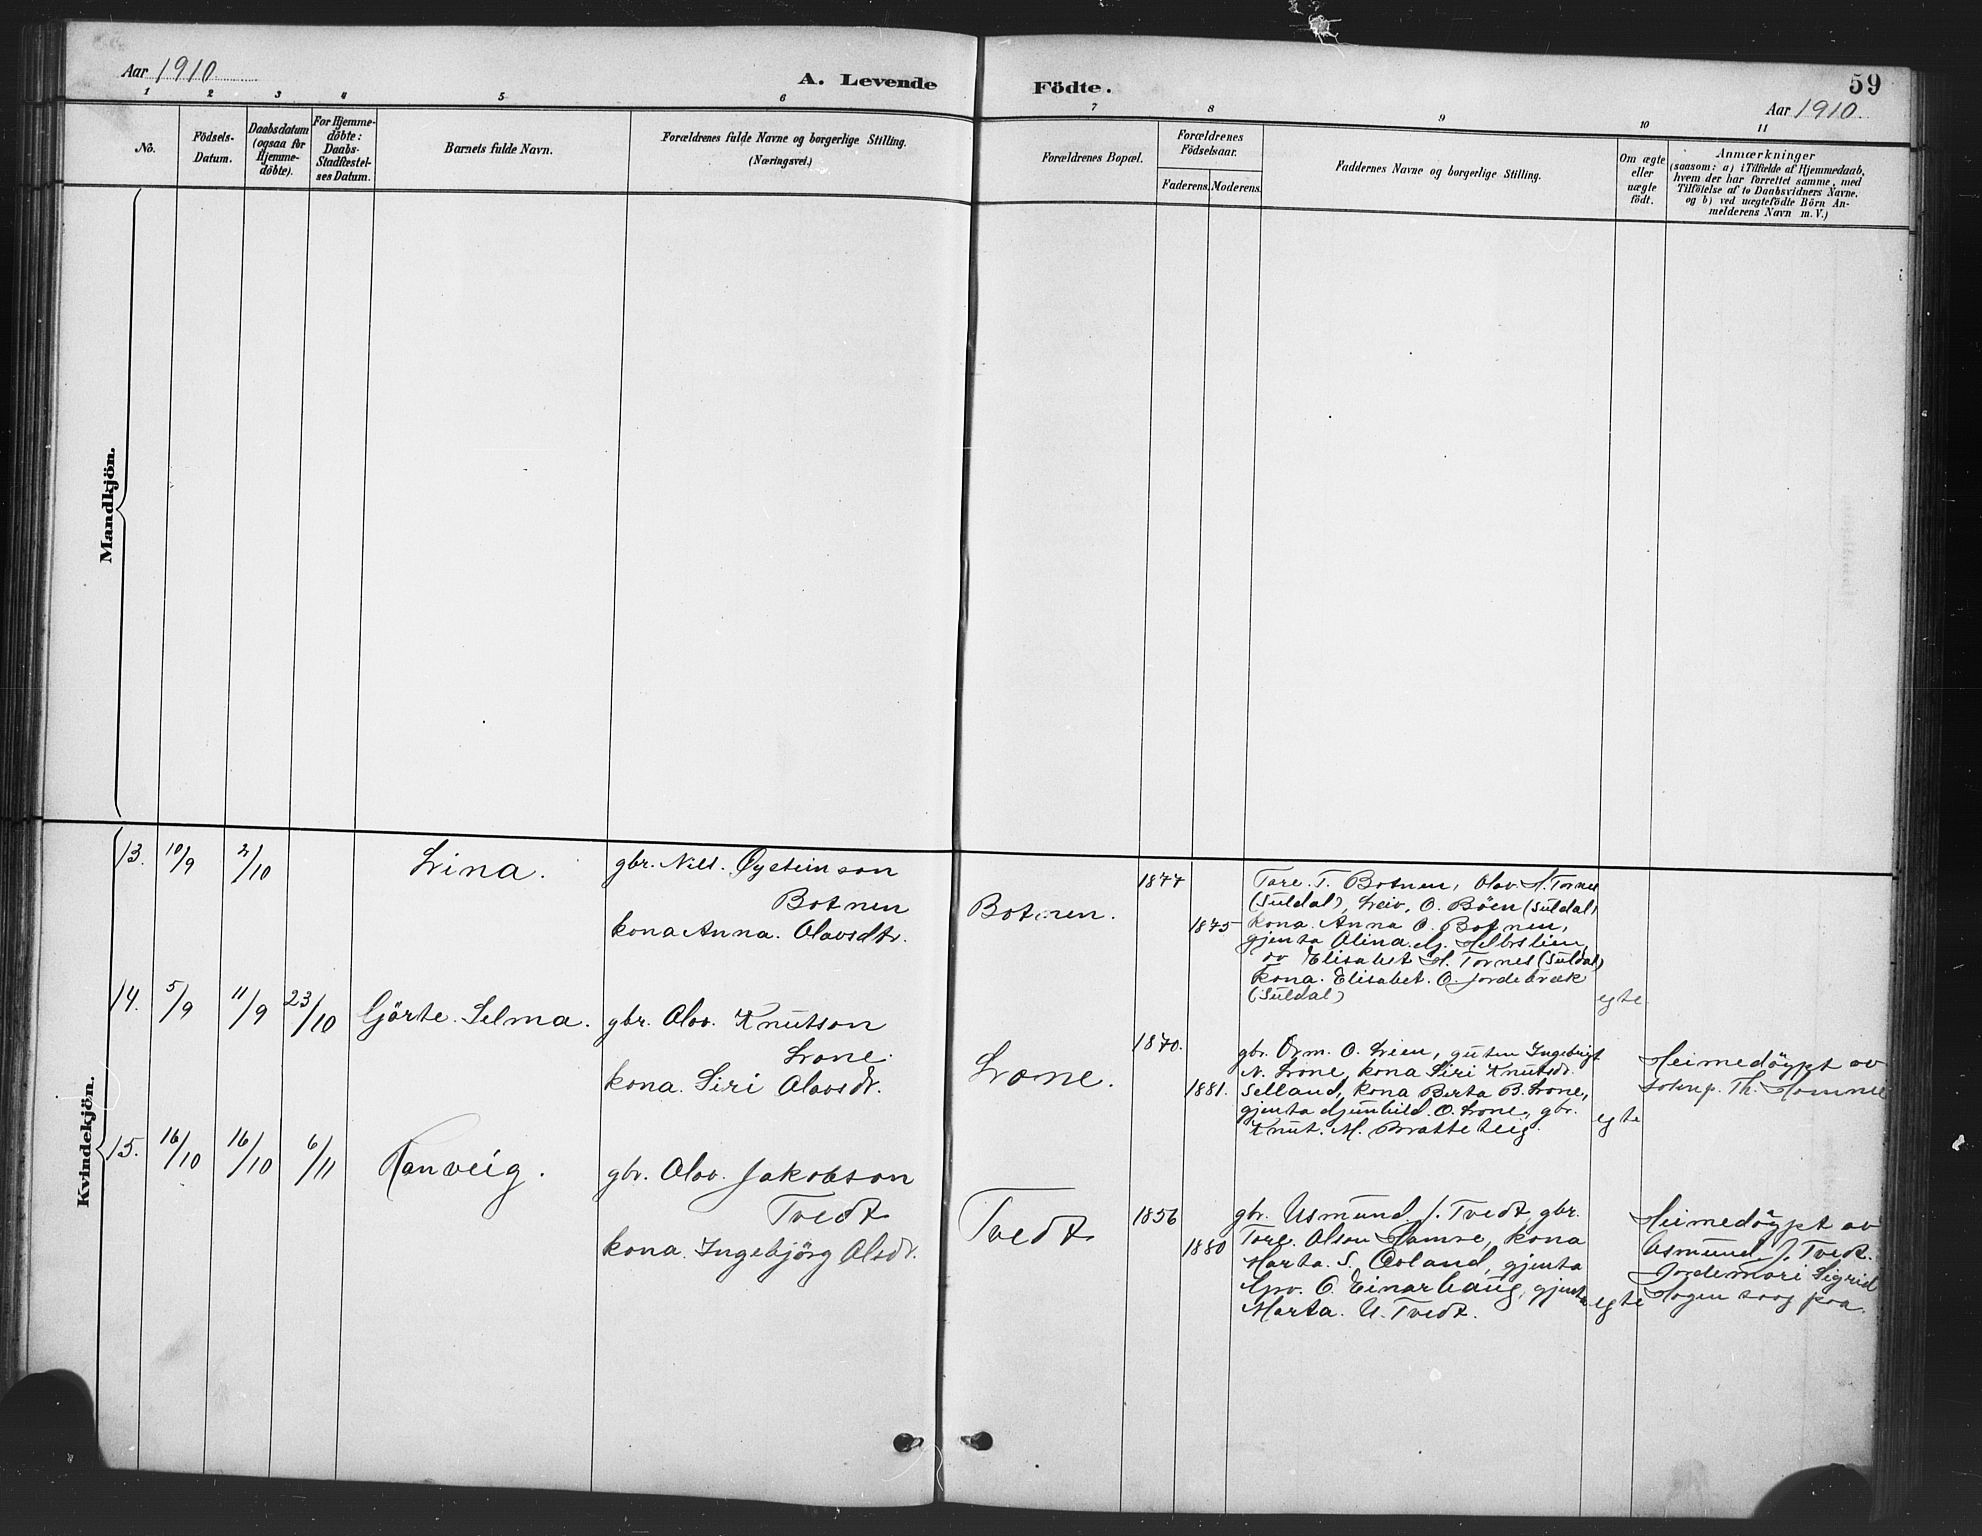 Aar 1910
A. Levende
Födte.
59
Aar 1910
1 2 3 4 5 6 7 8 9 10 11
No.
Födsels-
Datum.
Daabsdatum
(ogsaa for
Hjemme-
döbte).
For Hjemme-
döbte:
Daabs-
Stadfæstel-
ses Datum.
Barnets fulde Navn.
Forældrenes fulde Navne og borgerlige Stilling.
(Næringsvei.)
Forældrenes Bopæl.
Forældrenes
Födselsaar.
Faderens. Moderens.
Faddernes Navne og borgerlige Stilling.
Om ægte
eller
uægte
födt.
Anmærkninger
(saasom: a) i Tilfælde af Hjemmedaab,
hvem der har forrettet samme, med
Tilföielse af to Daabsvidners Navne.
og b) ved uægtefödte Börn An-
melderens Navn m. V.)
Mandkjön.
Kvindekjön.
13. 10/9 2/10
Lina.
gbr. Nils. Øysteinson
Botnen
kona Anna. Olavsdtr.
Botnen.
1877
1875
Tore. T. Botnen, Olav. H. Tornes
(Suldal), Leiv. O. Böen (Suldal)
kona. Anna O. Botnen,
gjenta Olina.
Elisabet H. Tornes (Suldal)
kona. Elisabet. O. Jordebræk
(Suldal)
egte
14. 5/9 11/9 23/10
Gjörte. Selma.
gbr. Olav. Knutson
Lrone.
kona. Siri Olavsdr.
Lrone.
1870.
1881.
gbr. Orm. O. Lien, guten Ingebrigt
N. Lrone, kona Siri Knutsdr.
Selland, kona Berta B. Lrone,
gjenta Gunhild. O. Lrone, gbr.
Knut. M. Bratteteig.
egte
Heimedöypt av
Th. Hamre
15. 16/10 16/10 6/11
Ranveig.
gbr. Olav. Jakobson
Tvedt
kona. Ingebjörg Olsdr.
Tvedt
1856
1880
gbr. Asmund J. Tvedt gbr.
Tore. Olson Hamre, kona
Marta. S. Øvland, gjenta
O. Einarhaug, gjenta
Marta. A. Tvedt.
egte
Heimedöypt av
Asmund J. Tvedt.
Jordemori Sigrid
Hogen saag paa.